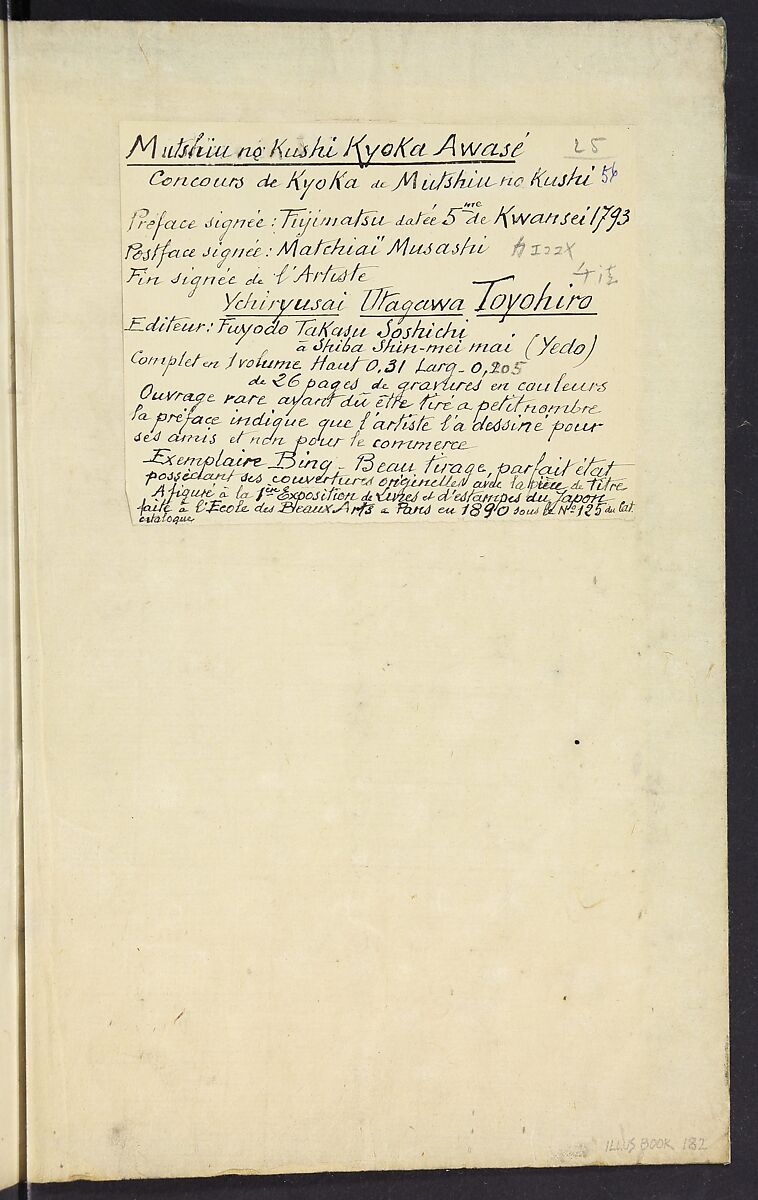 Mutshiu no Kushi Kyoka Awasé 25
Concours de Kyoka de Mutshiu no Kushi 56
Préface signée: Fujimatsu datée 5me de Kwansei 1793
Postface signée: Matchiaï Musashi
Fin signée de l'Artiste
Ychiryusai Utagawa Toyohiro
Editeur: Fuyodo Takasu Soshichi
à Shiba Shin-mei mai (Yedo)
Complet en 1 volume Haut 0,31 Larg- 0,205
de 26 pages de gravures en couleurs
Ouvrage rare ayant dû être tiré a petit nombre
la préface indique que l'artiste l'a dessiné pour
ses amis et non pour le commerce
Exemplaire Bing - Beau tirage, parfait état
possédant ses couvertures originelles avec la pièce de titre
A figuré à la 1ère Exposition de Livres et d'estampes du Japon
faite à l'Ecole des Beaux Arts a Paris en 1890 sous le No 125 du Cat.
catalogue
ILLUS BOOK 182